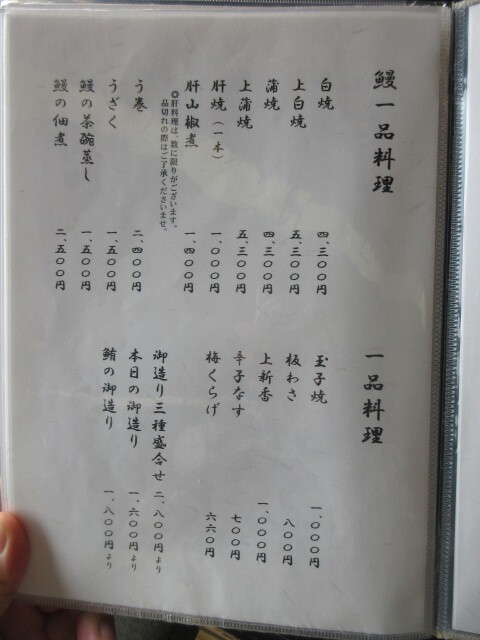 鰻一品料理
白焼 四、三〇〇円
上白焼 五、三〇〇円
蒲焼 四、三〇〇円
上蒲焼 五、三〇〇円
肝焼(一本) 一、〇〇〇円
肝山椒煮 一、四〇〇円
◎肝料理は、数に限りがございます。
品切れの際はご了承くださいませ。
う巻 二、四〇〇円
うざく 一、五〇〇円
鰻の茶碗蒸し 一、五〇〇円
鰻の佃煮 二、五〇〇円
一品料理
玉子焼 一、〇〇〇円
板わさ 八〇〇円
上新香 一、〇〇〇円
辛子なす 七〇〇円
梅くらげ 六六〇円
御造り三種盛合せ 二、八〇〇円より
本日の御造り 一、六〇〇円より
鮪の御造り 一、八〇〇円より